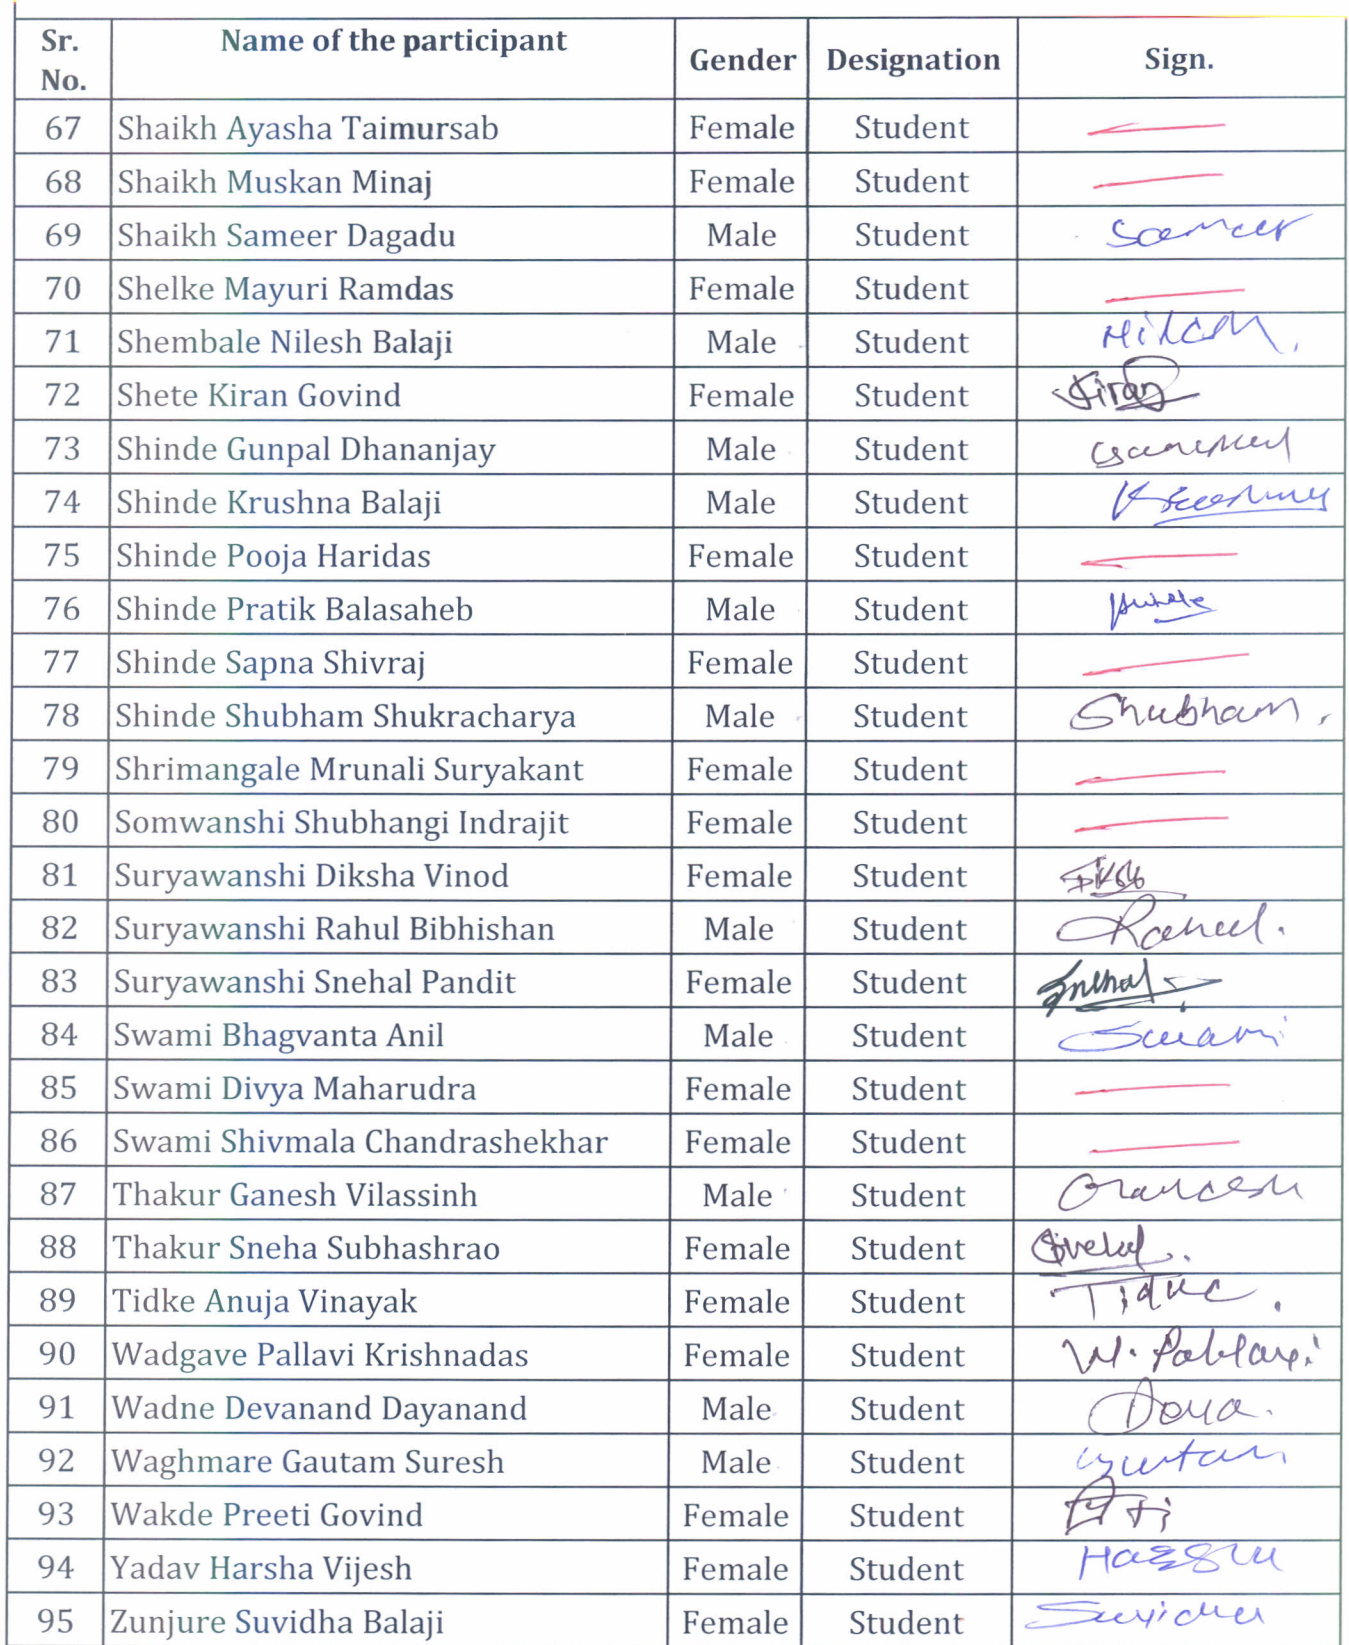 Sr. No. Name of the participant Gender Designation Sign.
67 Shaikh Ayasha Taimursab Female Student
68 Shaikh Muskan Minaj Female Student
69 Shaikh Sameer Dagadu Male Student Sameer
70 Shelke Mayuri Ramdas Female Student
71 Shembale Nilesh Balaji Male Student
72 Shete Kiran Govind Female Student Kiran
73 Shinde Gunpal Dhananjay Male Student
74 Shinde Krushna Balaji Male Student
75 Shinde Pooja Haridas Female Student
76 Shinde Pratik Balasaheb Male Student
77 Shinde Sapna Shivraj Female Student
78 Shinde Shubham Shukracharya Male Student Shubham.
79 Shrimangale Mrunali Suryakant Female Student
80 Somwanshi Shubhangi Indrajit Female Student
81 Suryawanshi Diksha Vinod Female Student
82 Suryawanshi Rahul Bibhishan Male Student Rahul.
83 Suryawanshi Snehal Pandit Female Student Snehal
84 Swami Bhagvanta Anil Male Student Swami
85 Swami Divya Maharudra Female Student
86 Swami Shivmala Chandrashekhar Female Student
87 Thakur Ganesh Vilassinh Male Student
88 Thakur Sneha Subhashrao Female Student
89 Tidke Anuja Vinayak Female Student Tidke.
90 Wadgave Pallavi Krishnadas Female Student W. Pallavi
91 Wadne Devanand Dayanand Male Student
92 Waghmare Gautam Suresh Male Student
93 Wakde Preeti Govind Female Student
94 Yadav Harsha Vijesh Female Student
95 Zunjure Suvidha Balaji Female Student